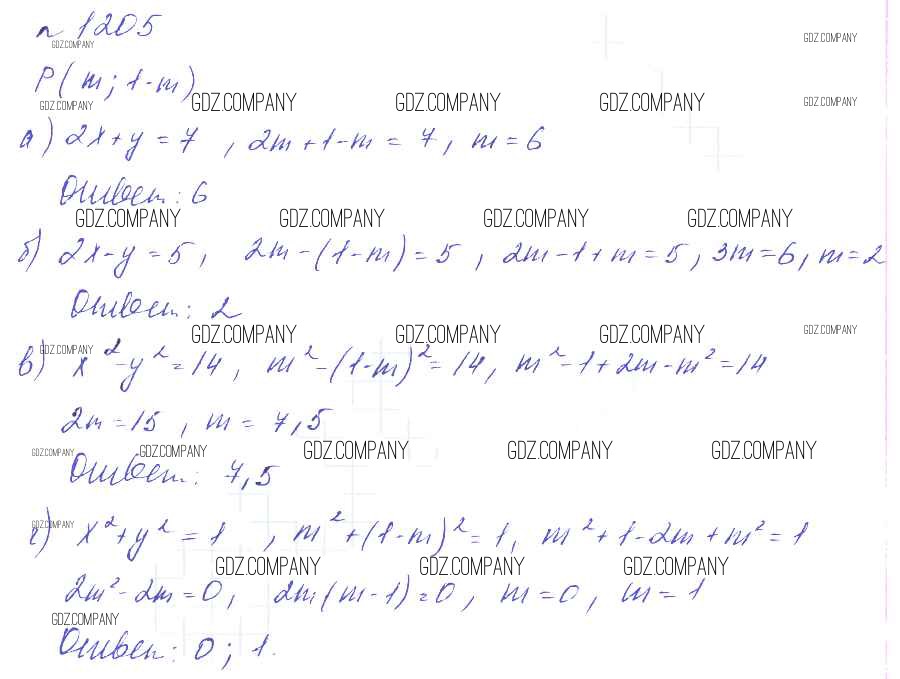 n 1205
GDZ.COMPANY GDZ.COMPANY
P(m; 1-m)
GDZ.COMPANY GDZ.COMPANY GDZ.COMPANY GDZ.COMPANY GDZ.COMPANY
а) 2x+y=7, 2m+1-m=7, m=6
Ответ: 6
GDZ.COMPANY GDZ.COMPANY GDZ.COMPANY GDZ.COMPANY
б) 2x-y=5, 2m-(1-m)=5, 2m-1+m=5, 3m=6, m=2
Ответ: 2
GDZ.COMPANY GDZ.COMPANY GDZ.COMPANY GDZ.COMPANY GDZ.COMPANY
в) x²-y²=14, m²-(1-m)²=14, m²-1+2m-m²=14
2m=15, m=7,5
GDZ.COMPANY GDZ.COMPANY GDZ.COMPANY GDZ.COMPANY GDZ.COMPANY
Ответ: 7,5
GDZ.COMPANY
г) x²+y²=1, m²+(1-m)²=1, m²+1-2m+m²=1
GDZ.COMPANY GDZ.COMPANY GDZ.COMPANY
2m²-2m=0, 2m(m-1)=0, m=0, m=1
GDZ.COMPANY
Ответ: 0; 1.